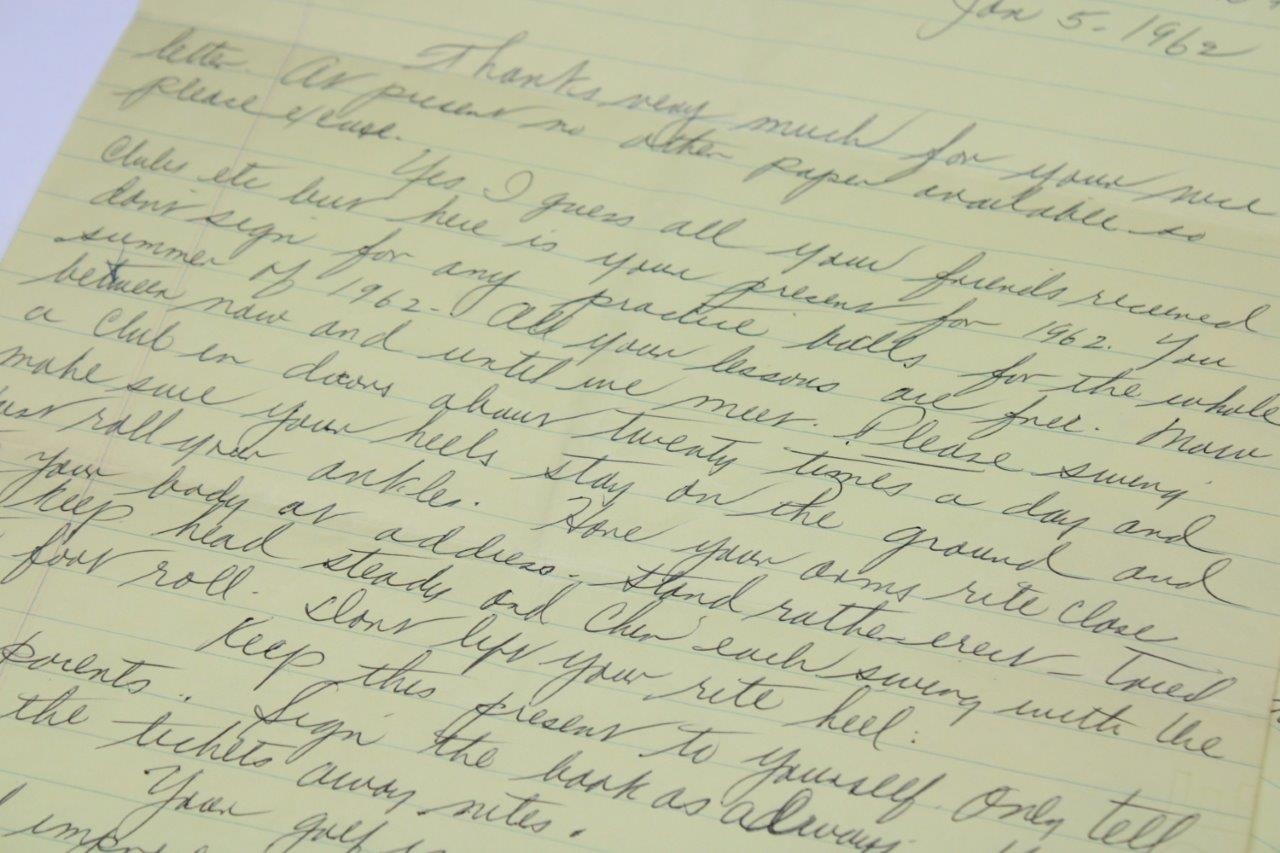 Jan 5. 1962
Thanks very much for your nice
letter. At present no other paper available so
please excuse.
Yes I guess all your friends received
Clubs etc but here is your present for 1962. You
dont sign for any practice balls for the whole
summer of 1962. All your lessons are free. Now
between now and until we meet. Please swing
a club in doors about twenty times a day and
make sure your heels stay on the ground and
just roll your ankles. Have your arms rite close
your body at address. Stand rather erect
keep head steady and chin each swing with the
foot roll. Dont lift your rite heel.
Keep this present to yourself. Only tell
parents. Sign the book as always
the tickets away nites.
Your golf